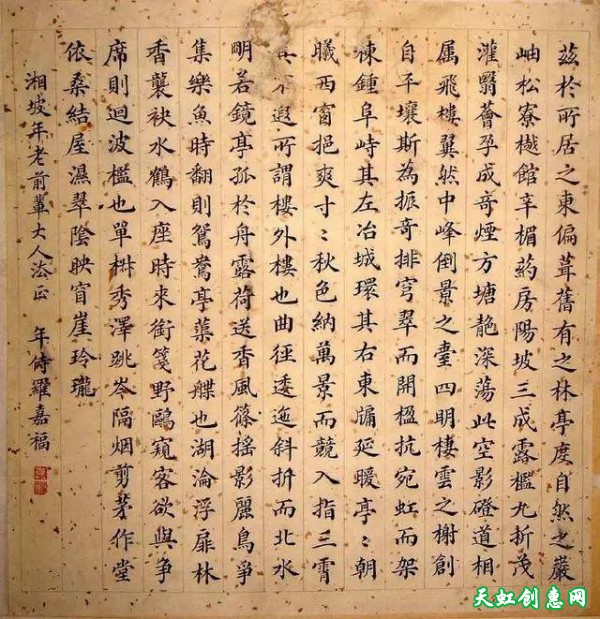 茲於所居之東偏葺舊有之林亭度自然之巖
岫松寮樾館辛楣葯房陽坡三成露檻九折茂
灌翳薈孕成奇煙方塘靘深蕩此空影磴道相
属飛樓翼然中峰倒景之臺四明棲雲之榭創
自平壤斯為振奇排穹翠而開楹抗宛虹而架
棟鍾阜峙其左冶城環其右東牖延暖亭〻朝
曦西窗挹爽寸〻秋色納萬景而競入指三霄
不遐所謂樓外樓也曲徑逶迤斜折而北水
明若鏡亭孤於舟露荷送香風篠摇影麗鳥爭
集樂魚時翻則鴛鴦亭蕖花艓也湖淪浮扉林
香襲袂水鶴入座時來銜箋野鷗窺客欲與爭
席則迴波檻也單椒秀澤跳岑隔烟剪茅作堂
依桑結屋濕翠陰映窅崖玲瓏
湘坡年老前輩大人法正 年侍羅嘉福
天虹创惠网